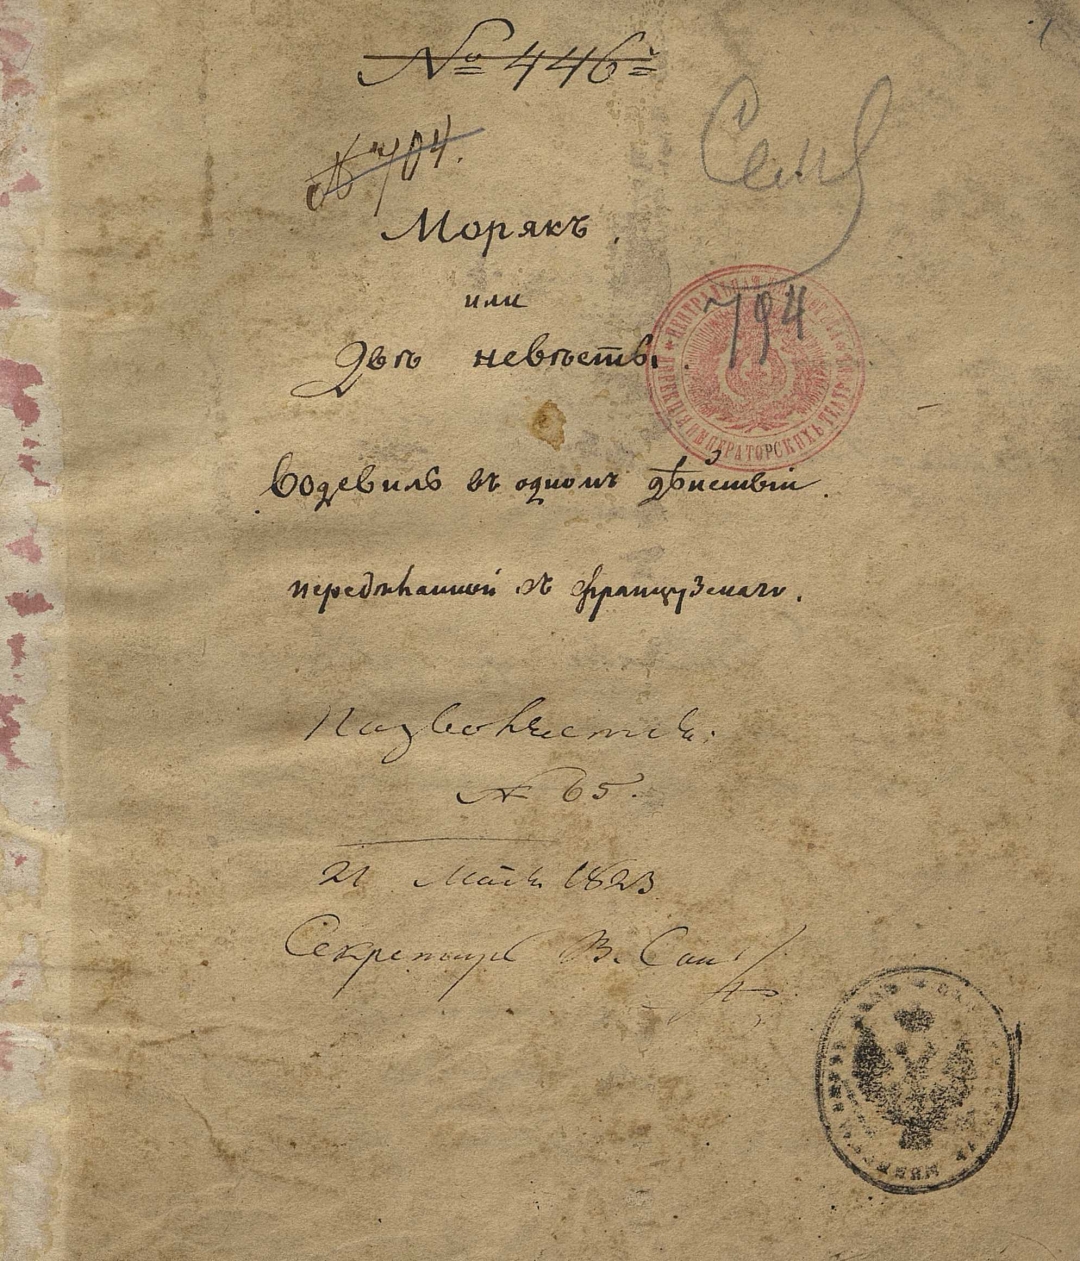 № 446
№ 704.
Морякъ.
или
Двѣ невѣсты.
794
Водевиль въ одномъ дѣйствіи.
передѣланный съ французскаго.
№ 65.
21 Маія 1823
Секретарь В.